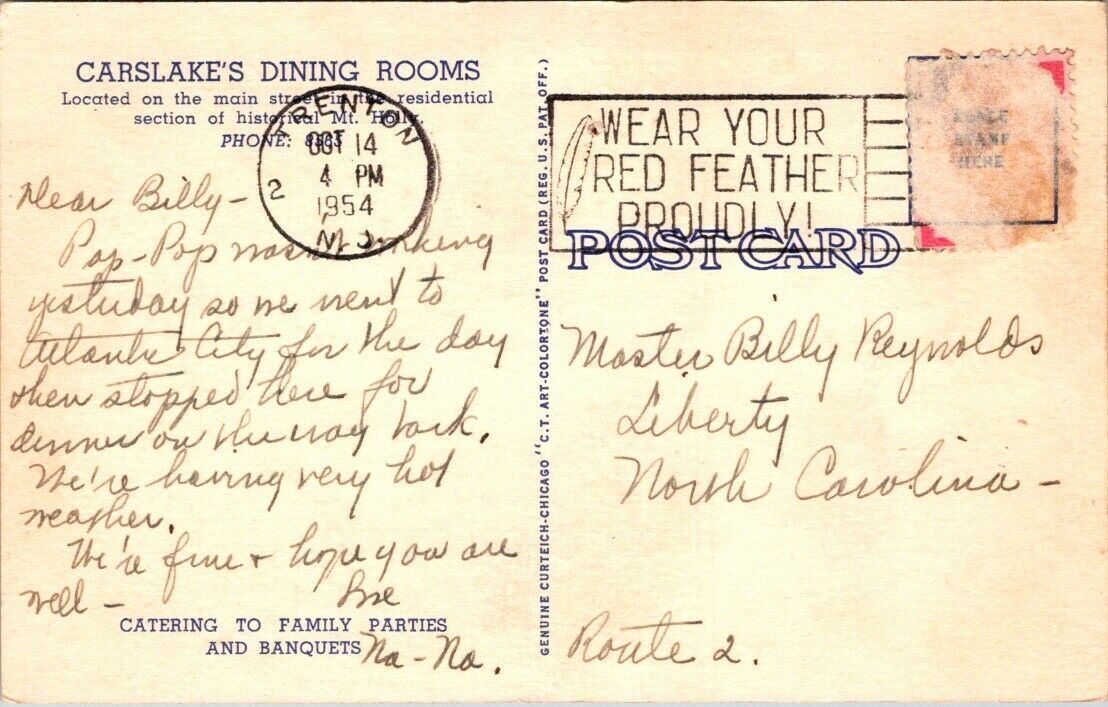 CARSLAKE'S DINING ROOMS
Located on the main street in the residential
section of historical Mt. Holly.
PHONE: 8363
TRENTON
OCT 14
4 PM
1954
N.J.
2
WEAR YOUR
RED FEATHER
PROUDLY!
PLACE
STAMP
HERE
POST CARD
Dear Billy-
Pop-Pop wasn't working
yesterday so we went to
Atlantic City for the day
then stopped here for
dinner on the way back.
We're having very hot
weather.
We're fine + hope you are
well - Love
Na-Na.
CATERING TO FAMILY PARTIES
AND BANQUETS
GENUINE CURTEICH-CHICAGO "C.T. ART-COLORTONE" POST CARD (REG. U.S. PAT. OFF.)
Master Billy Reynolds
Liberty
North Carolina -
Route 2.